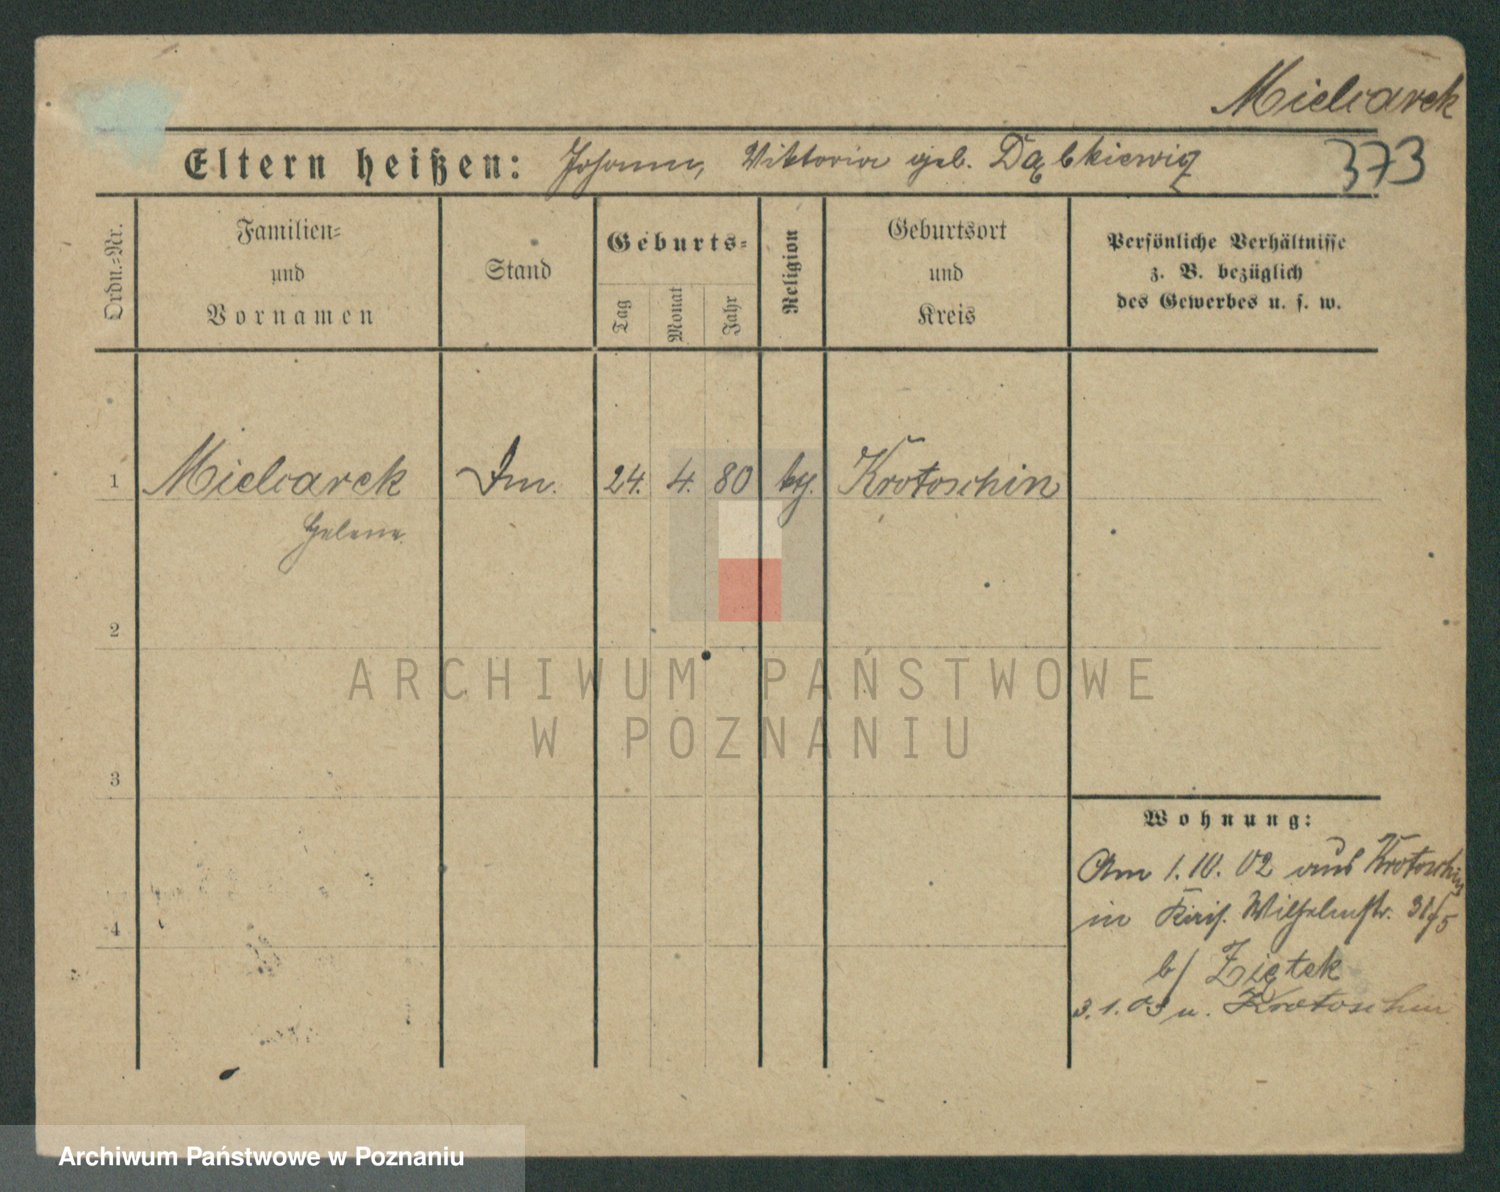 Mielcarek
Eltern heißen: Johann, Viktoria geb. Dąbkiewicz
373
Ordn.=Nr.
Familien=
und
Vornamen
Stand
Geburts=
Tag
Monat
Jahr
Religion
Geburtsort
und
Kreis
Persönliche Verhältnisse
z. B. bezüglich
des Gewerbes u. s. w.
1 Mielcarek 24. 4. 80 kg. Krotoschin
Helene
2
ARCHIWUM PAŃSTWOWE
W POZNANIU
3
Wohnung:
Am 1. 10. 02 aus Krotoschin
in Wilhelmstr. 31/5
4
b/ Ziętek
3.1.03 n. Krotoschin
Archiwum Państwowe w Poznaniu